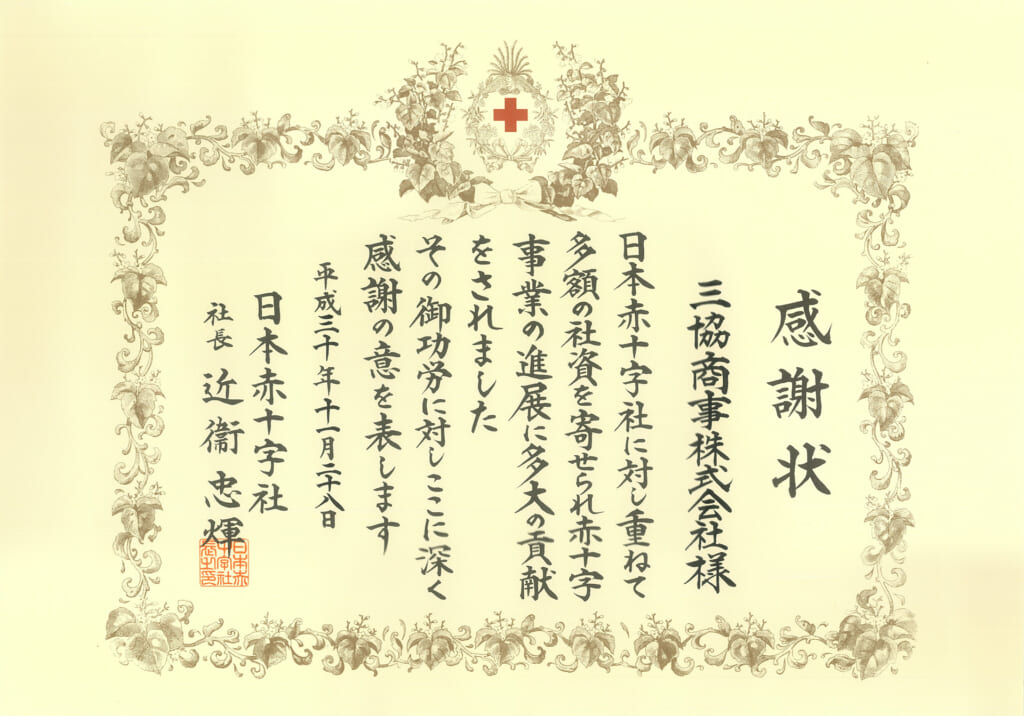 感謝状
三協商事株式会社様
日本赤十字社に対し重ねて
多額の社資を寄せられ赤十字
事業の進展に多大の貢献
をされました
その御功労に対しここに深く
感謝の意を表します
平成三十年十一月二十八日
日本赤十字社
社長 近衞忠煇
日本赤
十字社
長之印